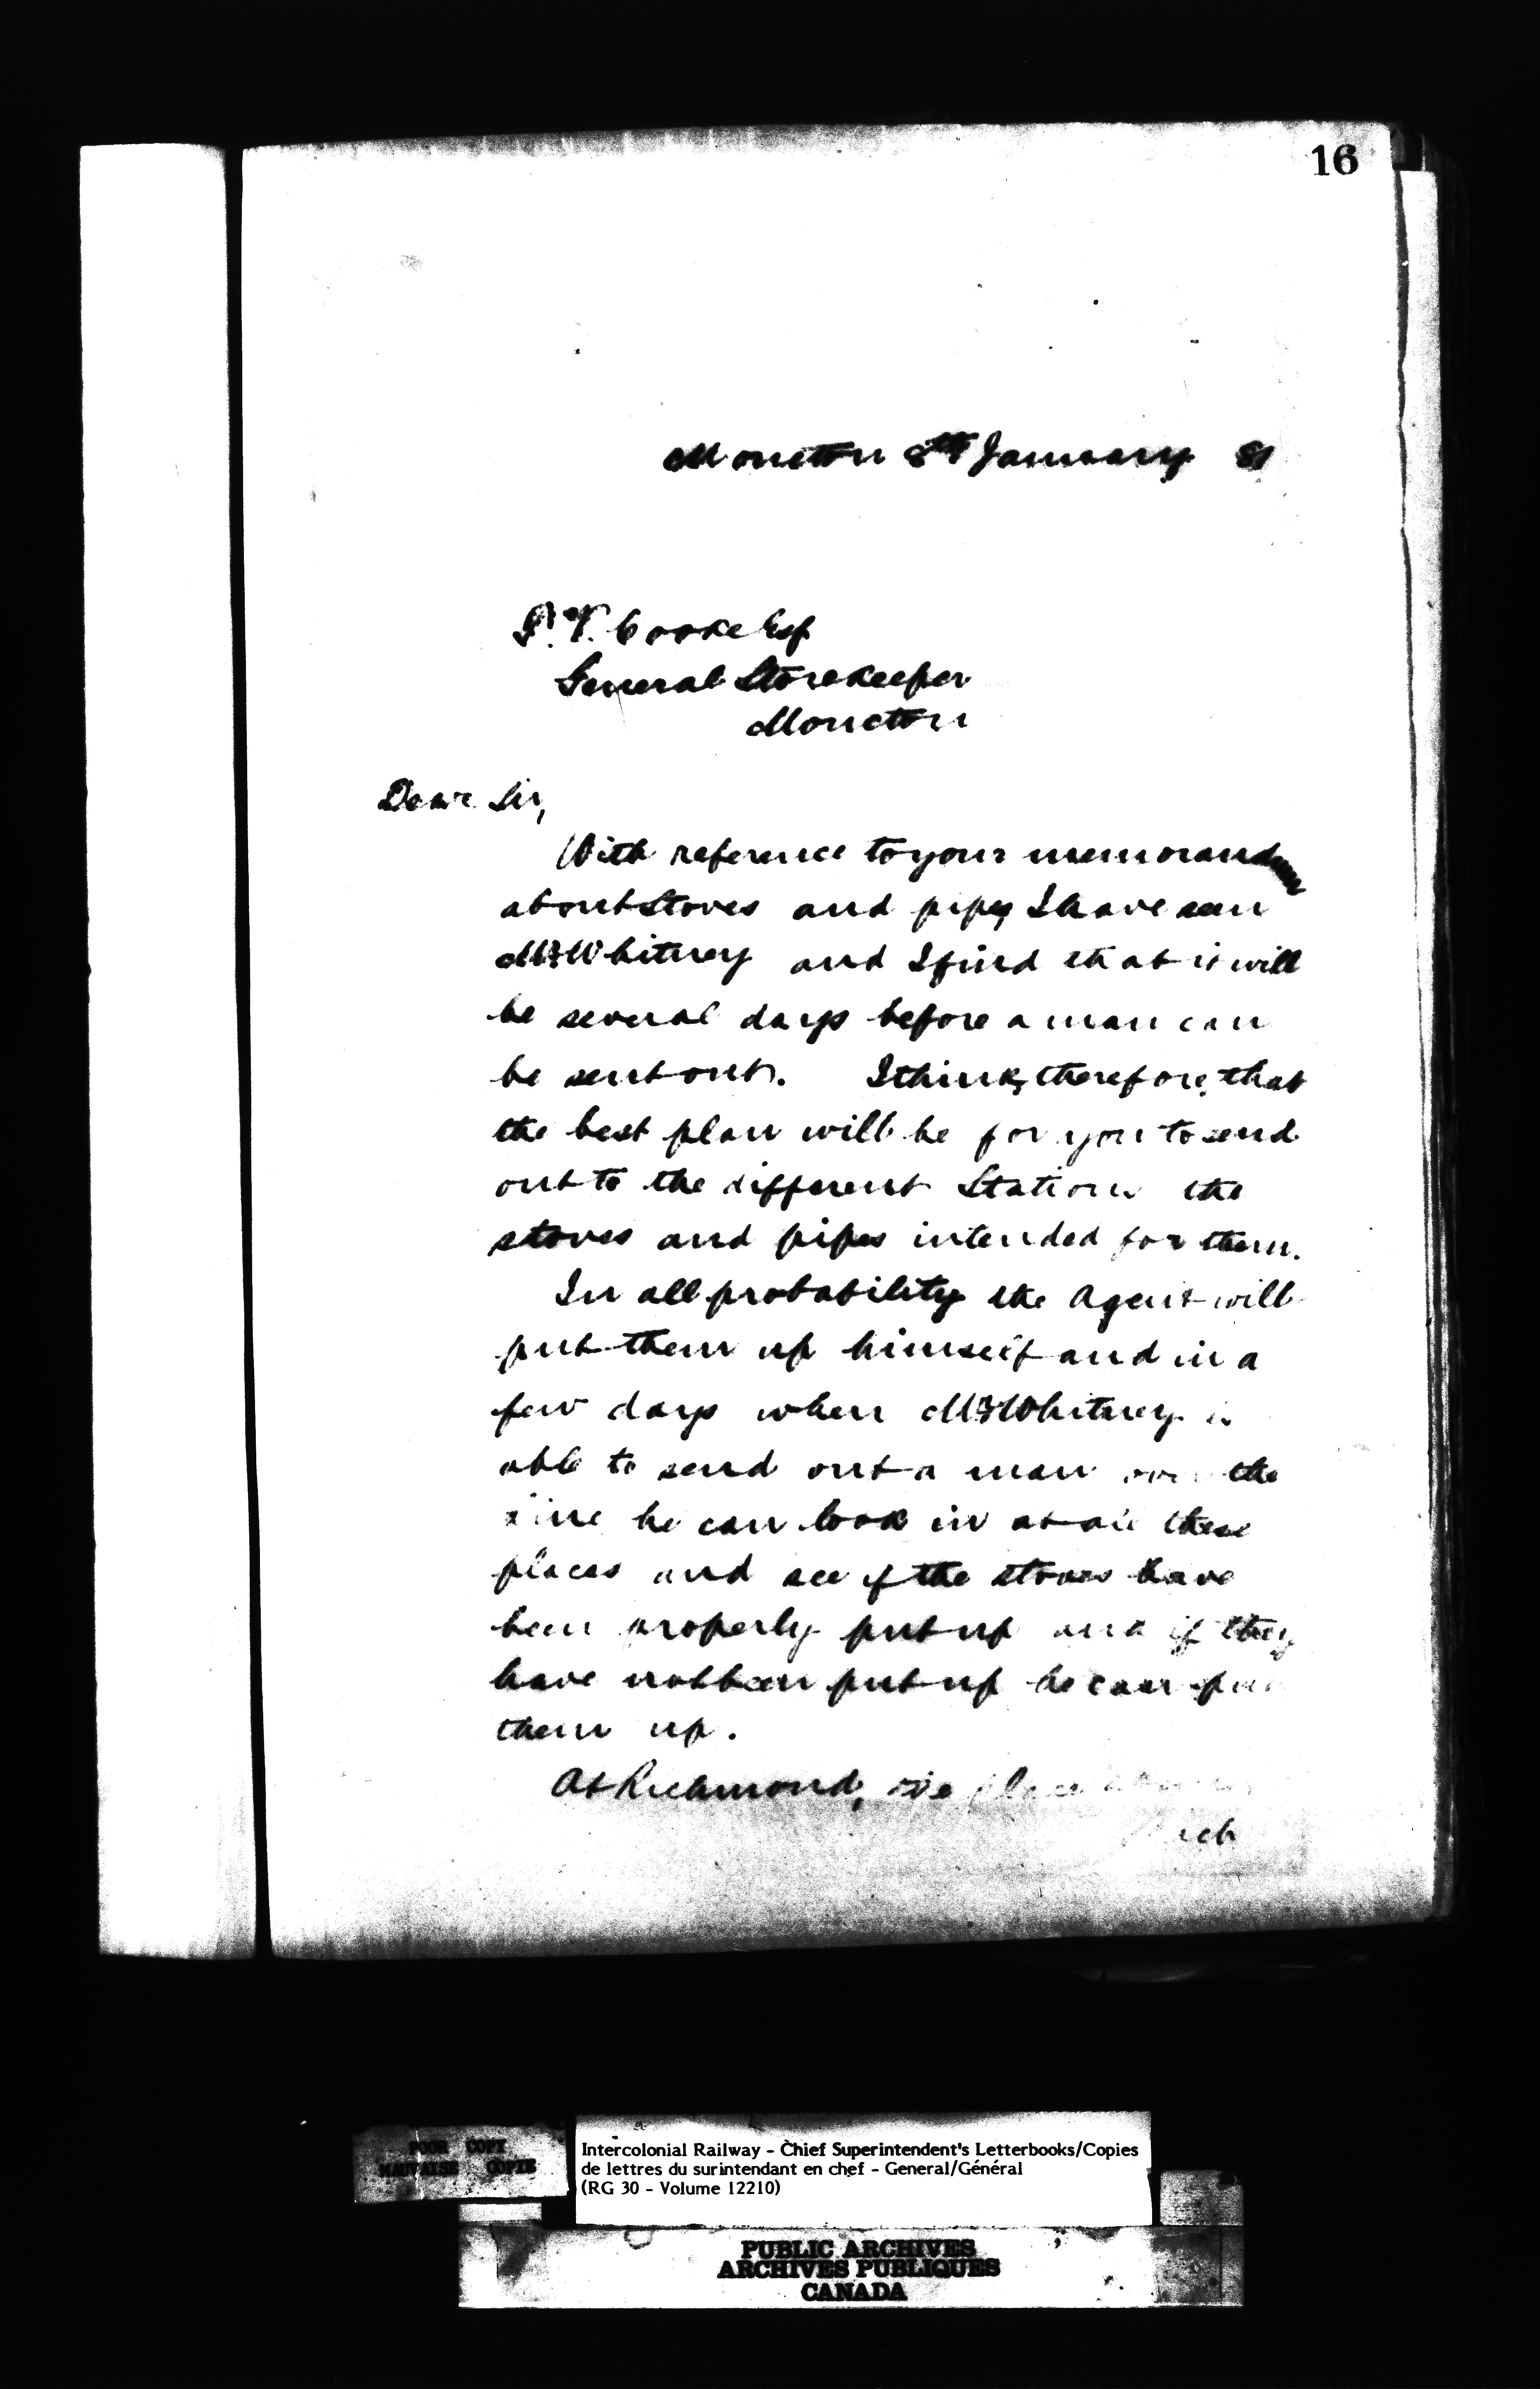 16
Moncton 8th January 81
P. V. Cooke Esq
General Storekeeper
Moncton
Dear Sir,
With reference to your memorandum
about Stoves and pipes, I have seen
Mr Whitney and I find that it will
be several days before a man can
be sent out. I think, therefore, that
the best plan will be for you to send
out to the different Stations the
stoves and pipes intended for them.
In all probability the Agent will
put them up himself and in a
few days when Mr Whitney is
able to send out a man over the
Line he can look in at all these
places and see if the stoves have
been properly put up and if they
have not been put up he can put
them up.
At Richmond, place
POOR COPY
MAUVAISE COPIE
Intercolonial Railway - Chief Superintendent's Letterbooks/Copies
de lettres du surintendant en chef - General/Général
(RG 30 - Volume 12210)
PUBLIC ARCHIVES
ARCHIVES PUBLIQUES
CANADA